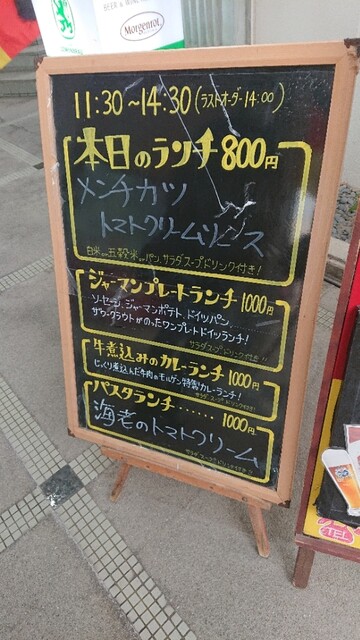 BEER & WINE
Morgenrot
11:30~14:30 (ラストオーダー14:00)
本日のランチ 800円
メンチカツ
トマトクリームソース
白米or五穀米orパン、サラダスープドリンク付き!
ジャーマンプレートランチ 1000円
ソーセージ、ジャーマンポテト、ドイツパン、
ザワークラウトがのったワンプレートドイツランチ!
サラダスープドリンク付き!!
牛煮込みのカレーランチ 1000円
じっくり煮込んだ牛肉のモルゲン特製カレーランチ!
サラダスープドリンク付き!
パスタランチ・・・・・・1000円
海老のトマトクリーム
サラダスープドリンク付き!!
TEL